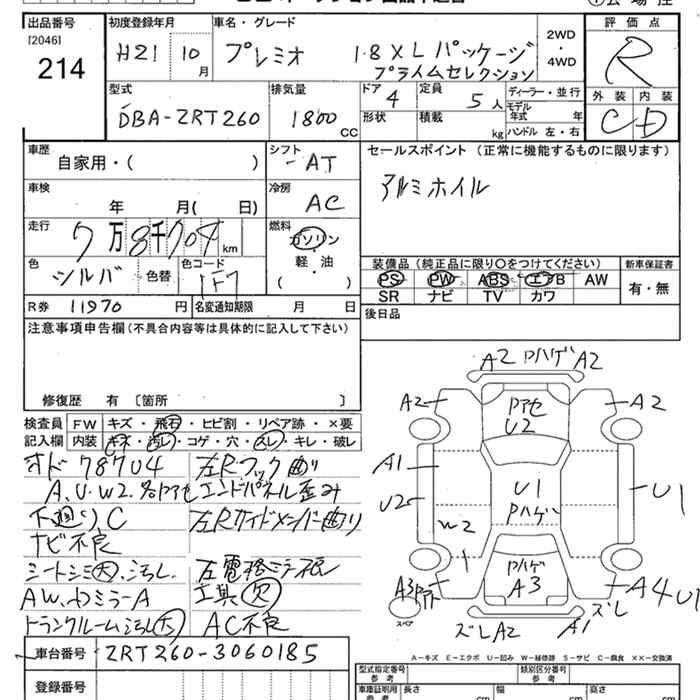 出品番号 初度登録年月 車名・グレード 評価点
[2046]
214
H21 10月 プレミオ 1.8 X L パッケージ 2WD・4WD R
プライムセレクション
型式 排気量 ドア 定員 ディーラー・並行 外装 内装
DBA-ZRT260 1800 CC 4 5人 モデル年式 年 C D
形状 積載 kg ハンドル 左・右
車歴 シフト セールスポイント (正常に機能するものに限ります)
自家用・( ) AT アルミホイル
車検 冷房
年 月( 日) AC
走行 燃料
7万8千704km ガソリン
軽・油
( )
色 色替 色コード 装備品 (純正品に限り○をつけてください) 新車保証書
シルバ 1F7 PS PW ABS エアB AW 有・無
SR ナビ TV カワ
R券 11970円 名変通知期限 月 日 後日品
注意事項申告欄(不具合内容等は具体的に記入して下さい)
修復歴 有 〔箇所
検査員 FW キズ・飛石・ヒビ割・リペア跡・×要
記入欄 内装 キズ・汚レ・コゲ・穴・スレ・キレ・破レ
オド 78704 左Rフック曲り
A.U.W2.各Pアセ エンドパネル歪み
下廻りC 左Rサイドメンバー曲り
ナビ不良
シートシミ大.汚れ. 左電格ミラー不良
AW. ミラーA 工具欠
トランクルーム汚れ大 AC不良
車台番号 ZRT260-3060185
登録番号
A2 Pハゲ A2
A2 Pアセ A2
U2
A1
U2 U1 U1
Pハゲ
W2
Pハゲ
A3 A3 A4 U1
ズレ
スペア ズレA2 A1
A-キズ E-エクボ U-凹み W-補修跡 S-サビ C-腐食 ××-交換済
型式指定番号 類別区分番号
参考 参考
車庫証明用 長さ 幅 高さ
参考 cm cm cm